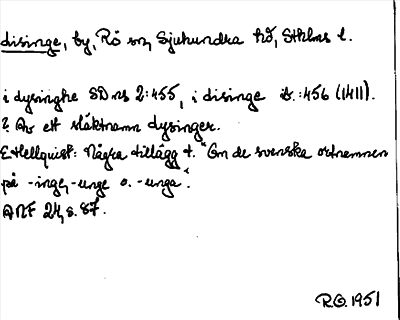 disinge, by, Rö sn, Sjuhundra hd, Sthlms l.
i dysinghe SD ns 2:455, i disinge ib.:456 (1411).
? Av ett släktnamn dysinger.
E. Hellquist: Några tillägg t. "Om de svenska ortnamnen
på -inge, -unge o. -unga".
ANF 24, s. 87.
R.O. 1951